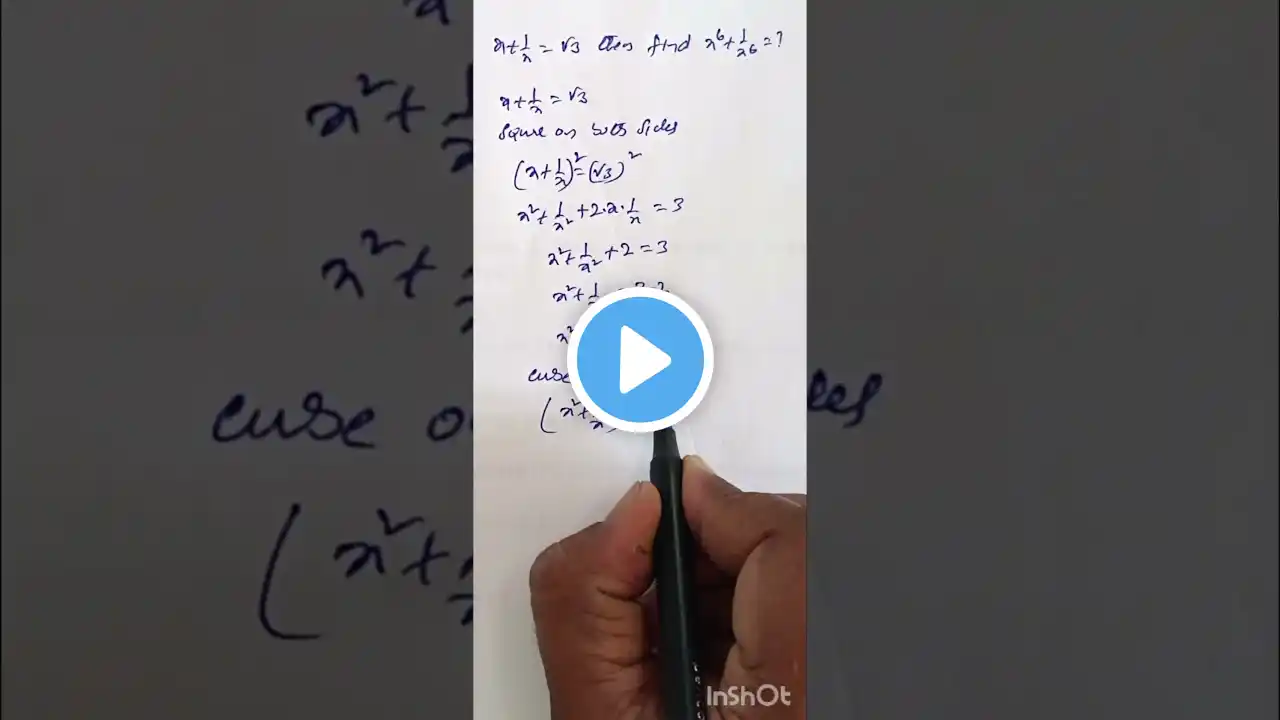 x+1/x = √3 then find x⁶+1/x⁶ = ?
x+1/x = √3
Squre on both sides
(x+1/x)² = (√3)²
x²+1/x²+2·x·1/x = 3
x²+1/x²+2 = 3
x²+1/
x²
cube
(x²+
InShOt